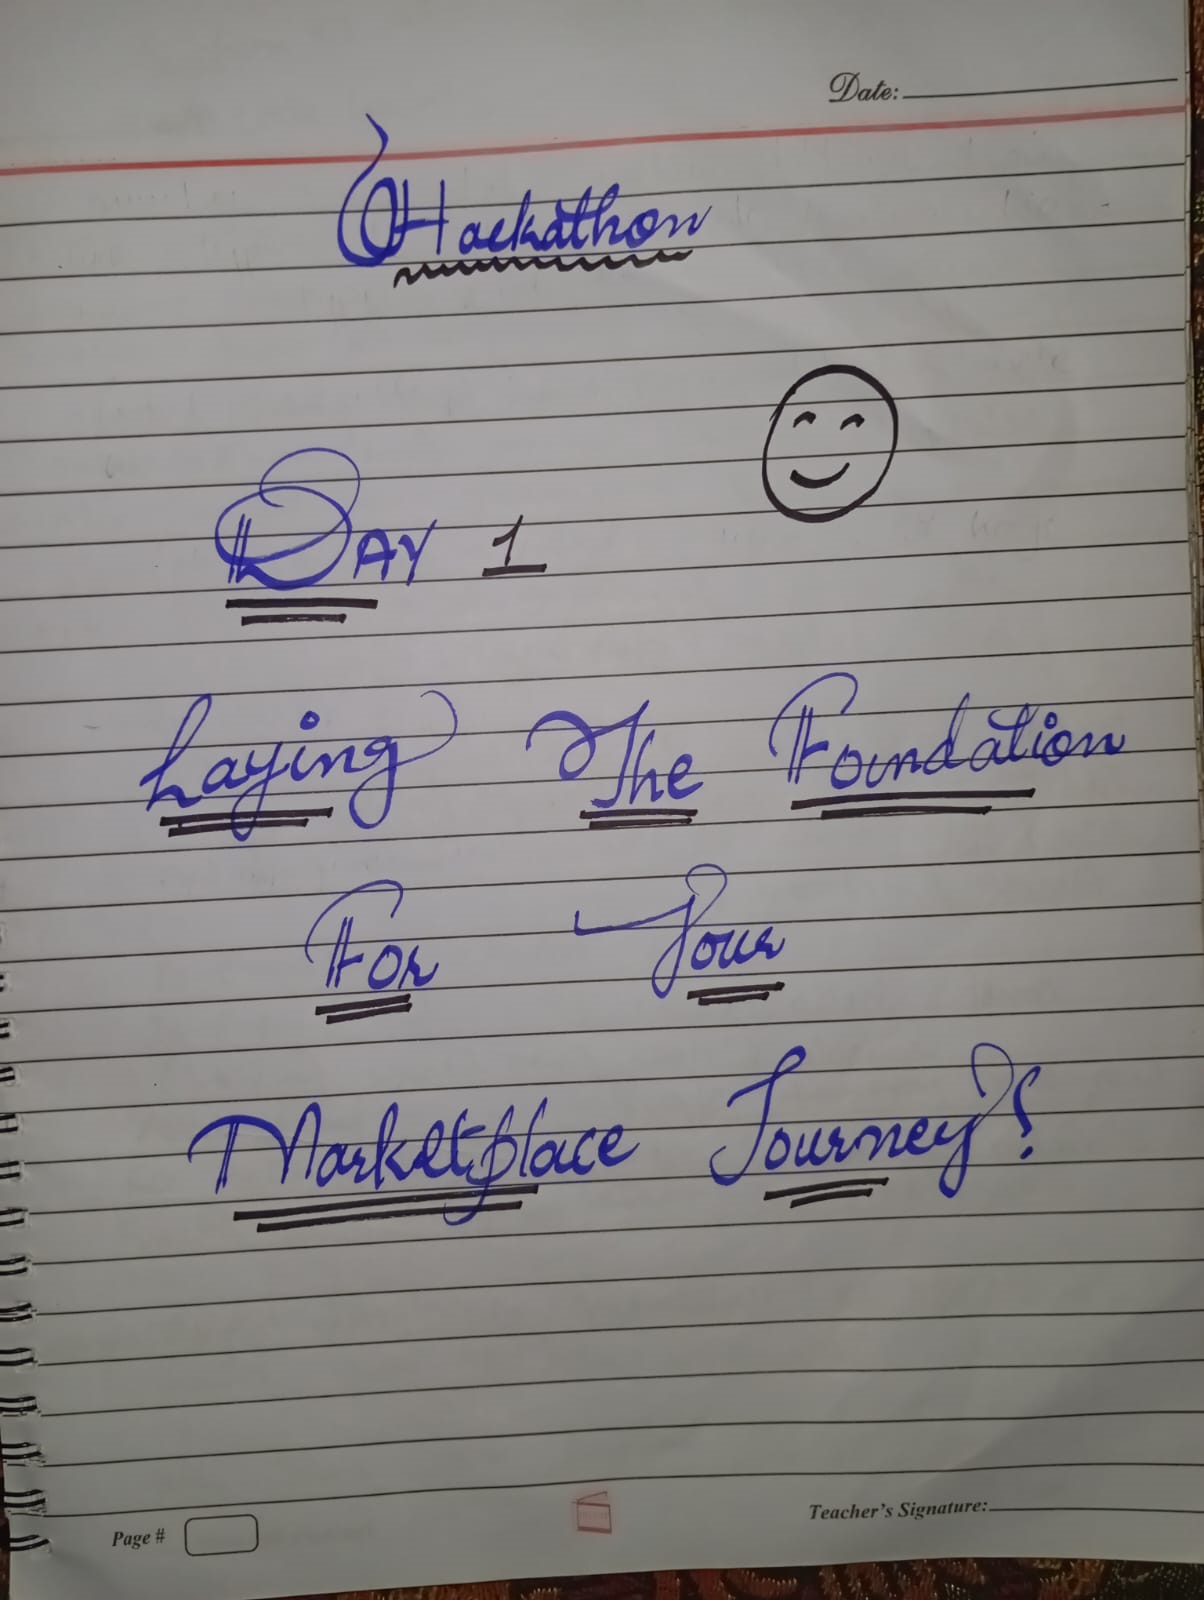 Date:
Hackathon
DAY 1
Laying The Foundation
For Your
Marketplace Journey!
Page #
Teacher's Signature: